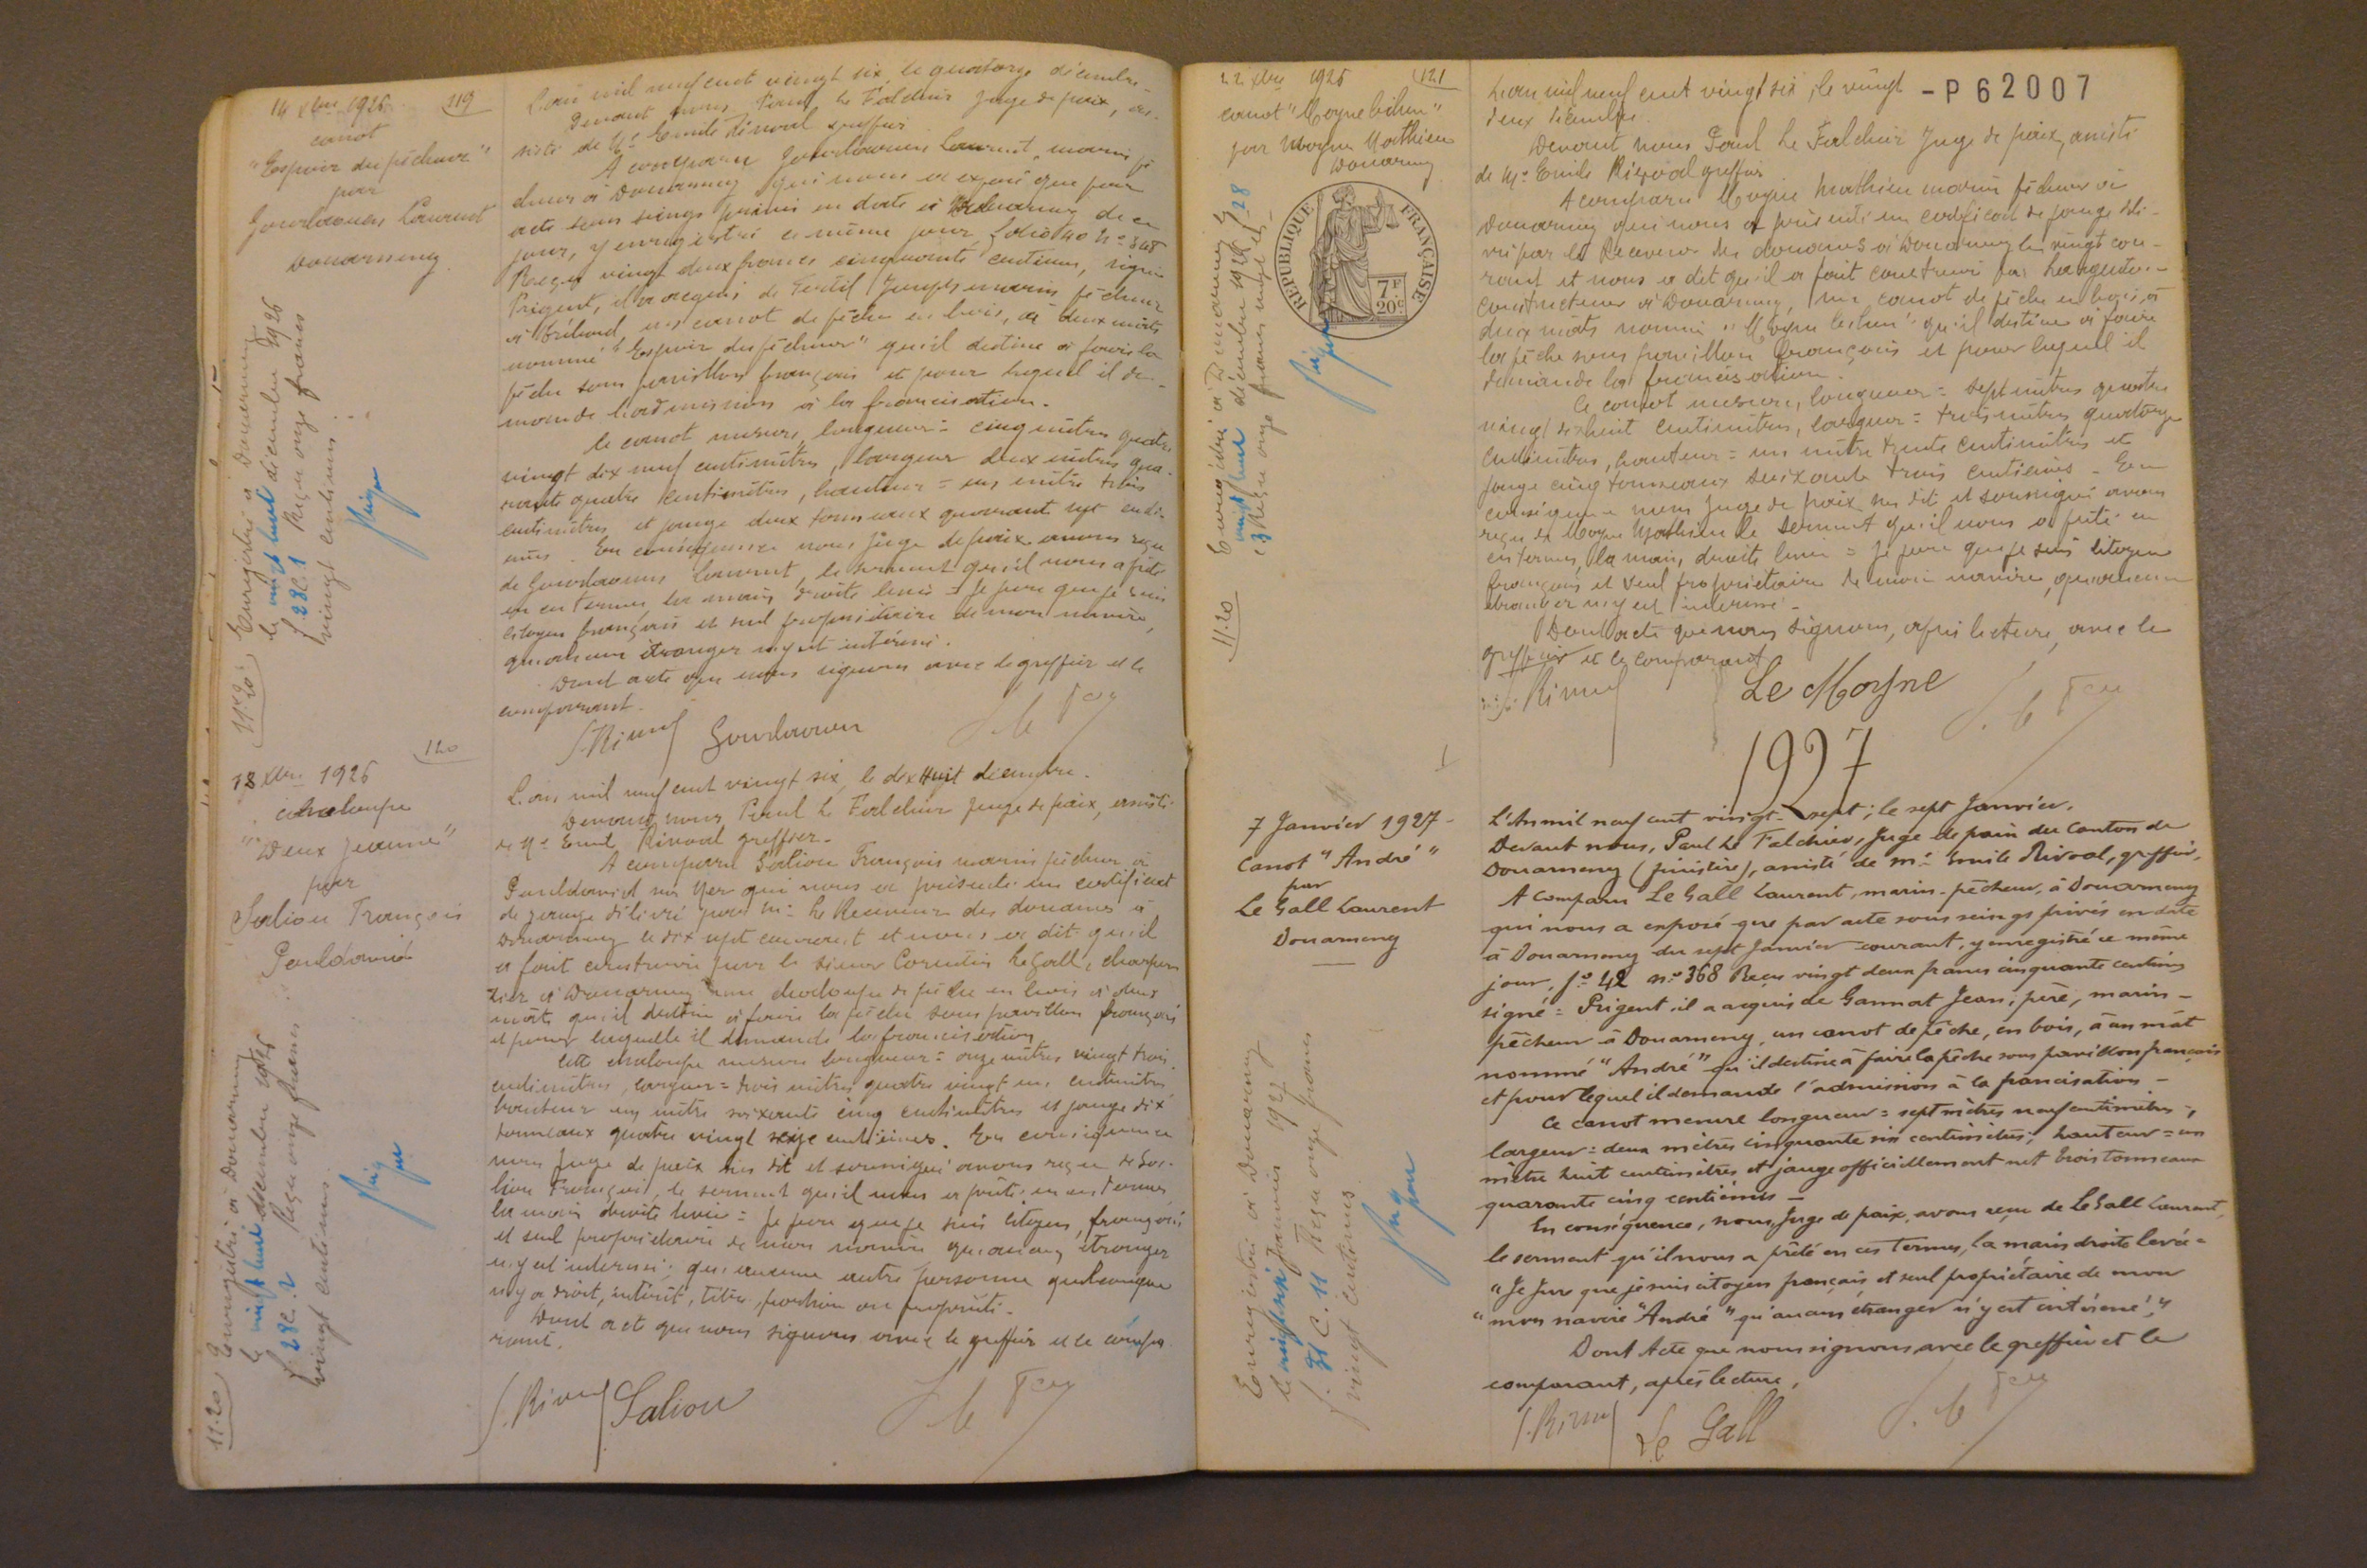 14 Xbre 1926 119
canot
"Espoir du pêcheur"
par
Gourlaouen Laurent
Douarnenez
Enregistré à Douarnenez
le vingt huit décembre 1926
f. 28 C. 1 Reçu onze francs
vingt centimes
11.20
L'an mil neuf cent vingt six, le quatorze décembre.
Devant nous Paul Le Falchier Juge de paix, as-
sisté de Me Emile Rivoal greffier
A comparu Gourlaouen Laurent, marin pê
cheur à Douarnenez qui nous a exposé que par
acte sous seings privés en date à Douarnenez de ce
jour, y enregistré ce même jour folio 40 No 348
Reçu vingt deux francs cinquante centimes, signé
Prigent, il a acquis de Joseph marin pêcheur
à Tréboul, un canot de pêche en bois, à deux mâts
nommé "Espoir du pêcheur" qu'il destine à faire la
pêche sous pavillon français et pour lequel il de-
mande l'admission à la francisation.
le canot mesure, longueur = cinq mètres quatre
vingt dix neuf centimètres, largeur deux mètres qua-
rante quatre centimètres, hauteur = un mètre trois
centimètres et jauge deux tonneaux quarante sept centi-
èmes. En conséquence nous Juge de paix avons reçu
de Gourlaouen Laurent, le serment qu'il nous a prêté
en ces termes, la main droite levée = Je jure que je suis
citoyen français et seul propriétaire de mon navire,
qu'aucun étranger n'y est intéressé.
Dont acte que nous signons avec le greffier et le
comparant.
E. Rivoal Gourlaouen
120
18 Xbre 1926
chaloupe
"Deux Jeanne"
par
Saliou François
Pouldavid
Enregistré à Douarnenez
le vingt huit décembre 1926
f. 28 C. 2 Reçu onze francs
vingt centimes.
11.20
L'an mil neuf cent vingt six, le dix Huit décembre.
Devant nous, Paul Le Falchier Juge de paix, assisté
de Me Emile Rivoal greffier.
A comparu Saliou François marin pêcheur à
Pouldavid sur Mer qui nous a présenté un certificat
de jauge délivré par Mr Le Receveur des douanes à
Douarnenez le dix sept courant et nous a dit qu'il
a fait construire par le sieur Corentin Le Gall, charpen
tier à Douarnenez une chaloupe de pêche en bois à deux
mâts qu'il destine à faire la pêche sous pavillon français
et pour laquelle il demande la francisation
Cette chaloupe mesure longueur = onze mètres vingt trois
centimètres, largeur = trois mètres quatre vingt un centimètres
hauteur un mètre soixante cinq centimètres et jauge dix
tonneaux quatre vingt seize centièmes. En conséquence
nous Juge de paix sus dit et soussigné avons reçu de Sa-
liou François, le serment qu'il nous a prêté en ces termes
la main droite levée = Je jure que je suis citoyen français
et seul propriétaire de mon navire qu'aucun étranger
n'y est intéressé; qu'aucune autre personne quelconque
n'y a droit, intérêt, titre, portion ou propriété.
Dont acte que nous signons avec le greffier et le compa
rant.
E. Rivoal Saliou
22 Xbre 1926 121
canot "Moyne bihen"
par Moyne Mathieu
Douarnenez
Enregistré à Douarnenez
vingt huit décembre 1926 f. 28
C. 3 Reçu onze francs vingt c.
11.20
REPUBLIQUE FRANÇAISE
7F
20c
-P 62007
L'an mil neuf cent vingt six, le vingt
deux décembre.
Devant nous Paul Le Falchier Juge de paix, assisté
de Me Emile Rivoal greffier
A comparu Moyne Mathieu marin pêcheur à
Douarnenez qui nous a présenté un certificat de jauge déli-
vré par le Receveur des douanes à Douarnenez le vingt cou-
rant et nous a dit qu'il a fait construire par
constructeur à Douarnenez, un canot de pêche en bois, à
deux mâts nommé "Moyne bihen" qu'il destine à faire
la pêche sous pavillon français et pour lequel il
demande la francisation.
Ce canot mesure, longueur = sept mètres quatre
vingt dix huit centimètres, largeur = trois mètres quatorze
centimètres, hauteur = un mètre trente centimètres et
jauge cinq tonneaux soixante trois centièmes - En
conséquence nous Juge de paix sus dit et soussigné avons
reçu de Moyne Mathieu le serment qu'il nous a prêté en
ces termes, la main, droite levée = Je jure que je suis citoyen
français et seul propriétaire de mon navire, qu'aucun
étranger n'y est intéressé -
Dont acte que nous signons, après lecture, avec le
greffier et le comparant
E. Rivoal Le Moyne
1927
7 Janvier 1927 -
Canot "André"
par
Le Gall Laurent
Douarnenez
Enregistré à Douarnenez
le vingt six janvier 1927
f. 31 C. 11 Reçu onze francs
vingt centimes
L'An mil neuf cent vingt-sept; le sept Janvier.
Devant nous, Paul Le Falchier, Juge de paix du Canton de
Douarnenez (finistère), assisté de Me Emile Rivoal, greffier,
A comparu Le Gall Laurent, marin-pêcheur, à Douarnenez
qui nous a exposé que par acte sous seings privés en date
à Douarnenez du sept Janvier courant, y enregistré ce même
jour, fo 42 no 368 Reçu vingt deux francs cinquante centimes
signé = Prigent, il a acquis de Gannat Jean, père, marin-
pêcheur à Douarnenez, un canot de pêche, en bois, à un mât
nommé "André" qu'il destine à faire la pêche sous pavillon français
et pour lequel il demande l'admission à la francisation -
Ce canot mesure longueur = sept mètres neuf centimètres -,
largeur = deux mètres cinquante six centimètres; hauteur = un
mètre huit centimètres et jauge officiellement net trois tonneaux
quarante cinq centièmes -
En conséquence, nous, Juge de paix, avons reçu de Le Gall Laurent,
le serment qu'il nous a prêté en ces termes, la main droite levée =
"Je Jure que je suis citoyen français et seul propriétaire de mon
"mon navire "André" qu'aucun étranger n'y est intéressé",
Dont Acte que nous signons, avec le greffier et le
comparant, après lecture,
E. Rivoal Le Gall